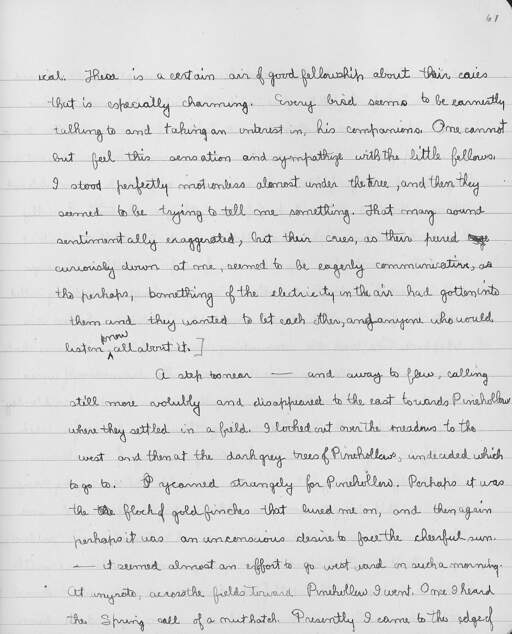 61
ical. There is a certain air of good fellowship about their cries
that is especially charming. Every bird seems to be earnestly
talking to and taking an interest in, his companions. One cannot
but feel this sensation and sympathize with the little fellows.
I stood perfectly motionless almost under the tree, and then they
seemed to be trying to tell me something. That may sound
sentimentally exaggerated, but their cries, as they peered
curiously down at me, seemed to be eagerly communicative, as
tho perhaps, something of the electricity in the air had gotten into
them and they wanted to let each other, and anyone who would
listen, know all about it.]
A step too near — and away to flew, calling
still more volubly and disappeared to the east towards Pinehollow
where they settled in a field. I looked out over the meadows to the
west and then at the dark grey trees of Pinehollow, undecided which
to go to. I yearned strangely for Pinehollow. Perhaps it was
the flock of goldfinches that lured me on, and then again
perhaps it was an unconscious desire to face the cheerful sun.
— it seemed almost an effort to go westward on such a morning.
At anyrate, across the fields toward Pinehollow I went. Once I heard
the Spring call of a nuthatch. Presently I came to the edge of